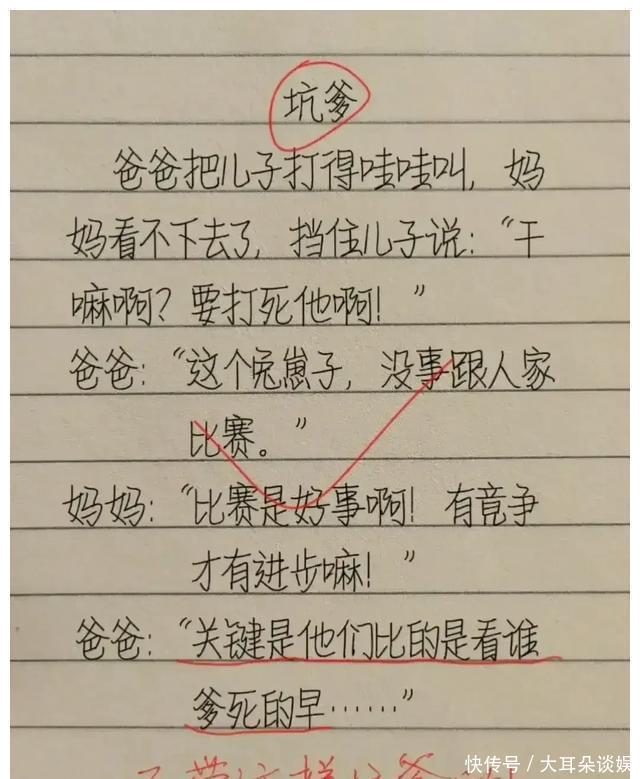 坑爹
爸爸把儿子打得哇哇叫，妈
妈看不下去了，挡住儿子说：“干
嘛啊？要打死他啊！”
爸爸：“这个兔崽子，没事跟人家
比赛。”
妈妈：“比赛是好事啊！有竞争
才有进步嘛！”
爸爸：“关键是他们比的是看谁
爹死的早……”
快传号／大耳朵谈娱